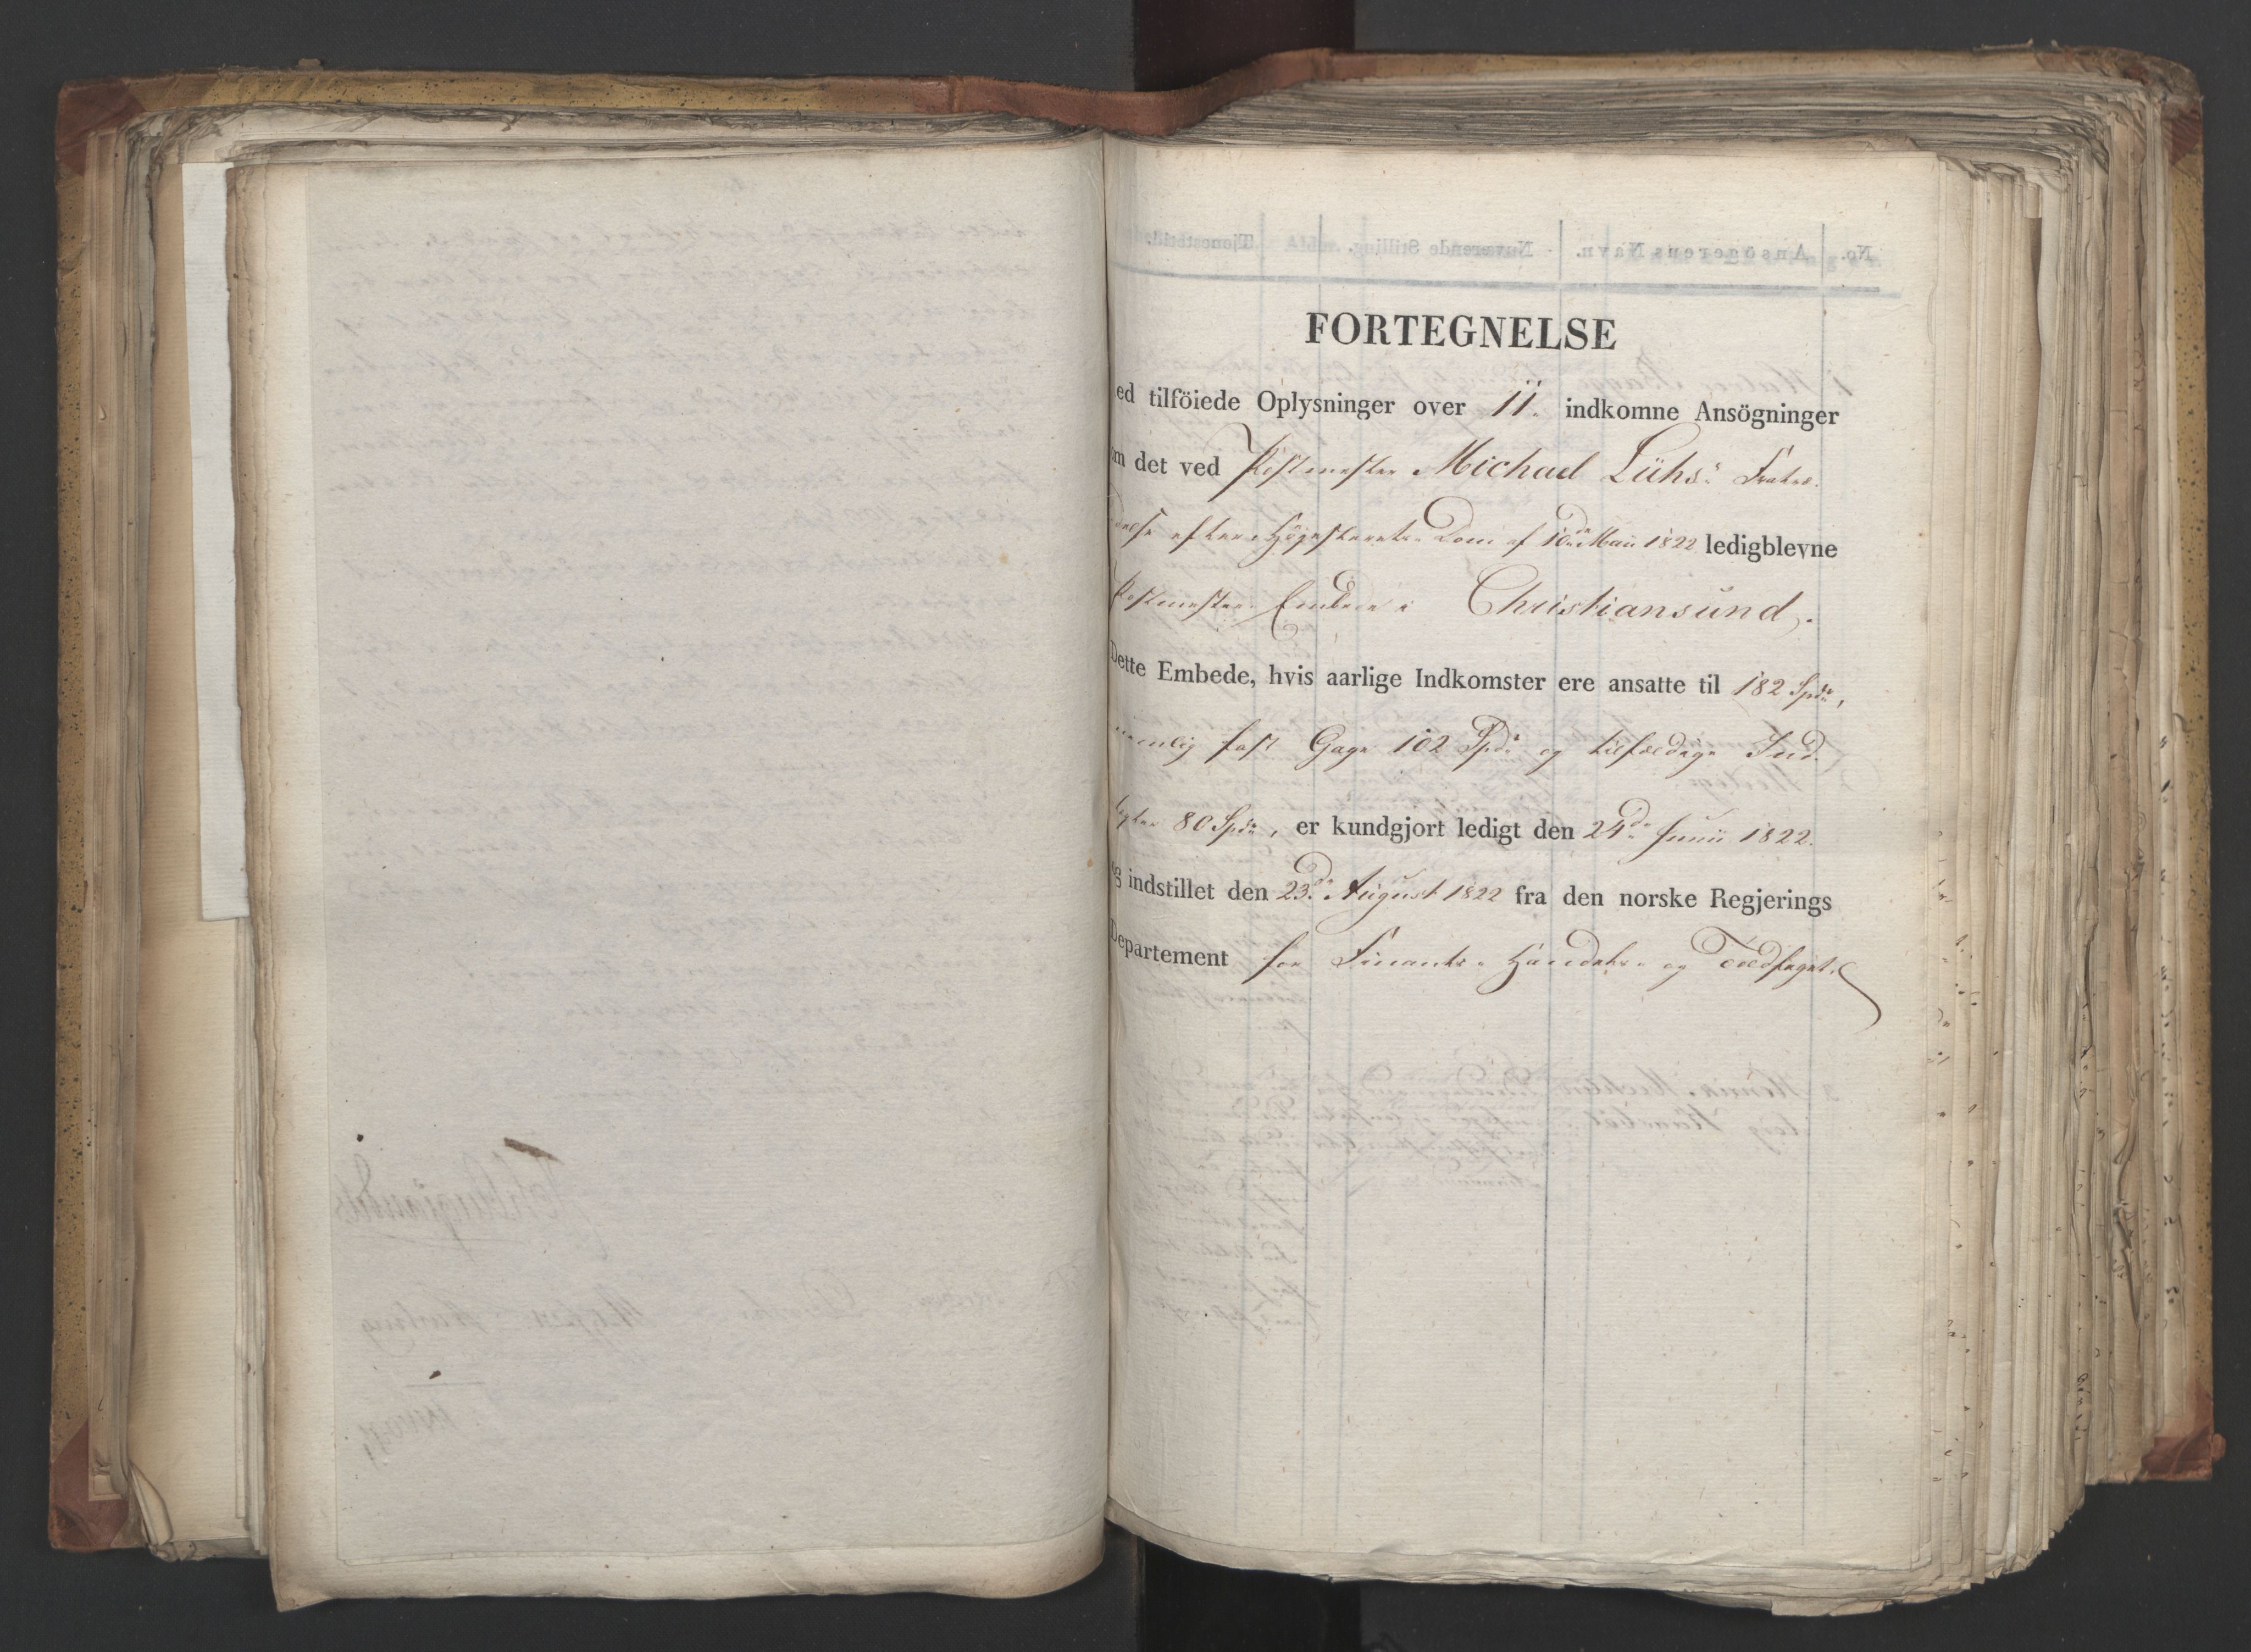 FORTEGNELSE
ed tilföiede Oplysninger over 11. indkomne Ansögninger
m det ved Postmester Michael Lühs's Fratræ-
delse efter Høiesterets Dom af 10de Maii 1822 ledigblevne
Postmester Embede i Christiansund.
Dette Embede, hvis aarlige Indkomster ere ansatte til 182 Spdr,
nemlig fast Gage 102 Spdr og tilfældige Ind-
tægter 80 Spdr, er kundgjort ledigt den 24de Junii 1822.
g indstillet den 23de August 1822 fra den norske Regjerings
Departement for Finants- Handels- og Toldfaget.